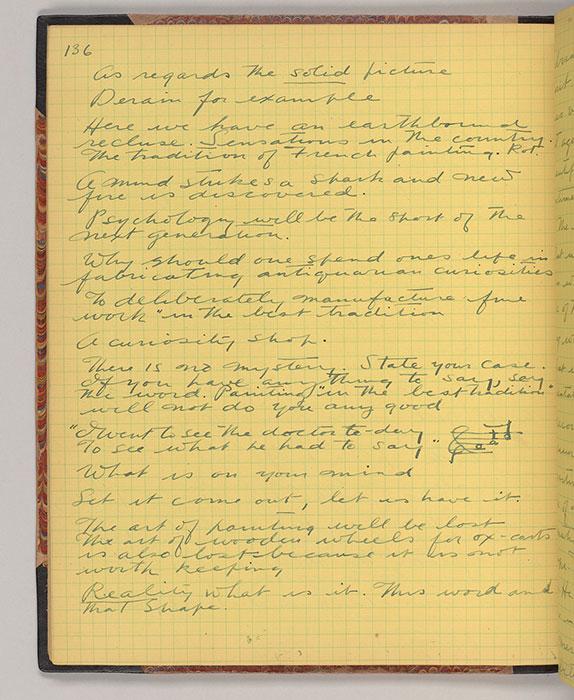 136
As regards the solid picture
Derain for example
Here we have an earthbound
recluse. Sensations in the country.
The tradition of French painting. Rot.
A mind strikes a spark and new
fire is discovered.
Psychology will be the sport of the
next generation.
Why should one spend ones life in
fabricating antiquarian curiosities
To deliberately manufacture fine
work "in the best tradition
A curiosity shop.
There is no mystery. State your case.
If you have anything to say, say
the word. Painting "in the best tradition"
will not do you any good
"I went to see the doctor to-day
To see what he had to say"
What is on your mind
Let it come out, let us have it.
The art of painting will be lost
The art of wooden wheels for ox-carts
is also lost because it is not
worth keeping
Reality what is it. This word and
that shape.